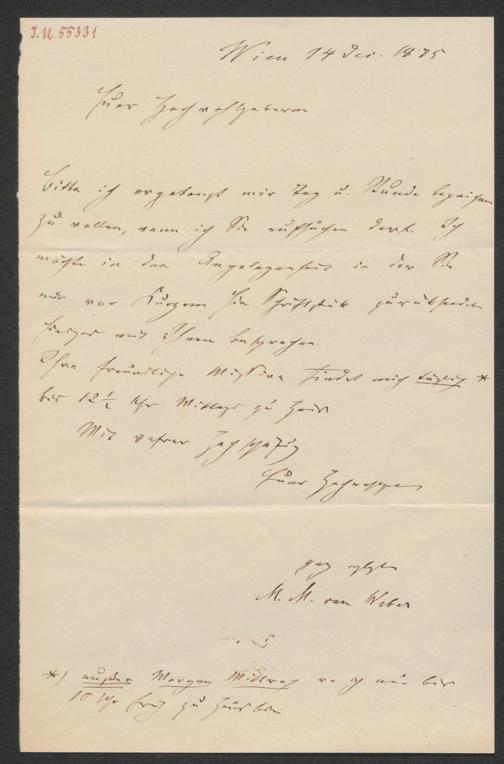 I.N. 55331
Wien 14 Dez. 1875
Euer Hochwohlgeboren
Bitte ich ergebenst mir Tag u. Stunde bezeichnen
zu wollen, wann ich Sie aufsuchen darf. Ich
möchte in der Angelegenheit in der Sie
mir vor Kurzem ein Schriftstück zurücksendeten
mit Ihnen besprechen.
Ihre freundliche Missive findet mich täglich *
bis 12 ½ Uhr Mittags zu Haus
Mit wahrer Hochschätzung
Euer Hochwohlgeb
ganz ergebener
M. M. von Weber
*) außer Morgen Mittwoch wo ich nur bis
10 Uhr früh zu Haus bin